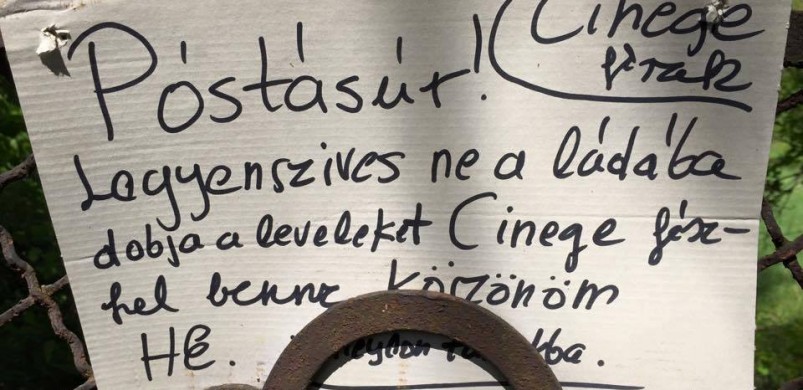 Póstásúr!
Cinege
fészek
Legyenszives ne a ládába
dobja a leveleket Cinege fész-
kel benne Köszönöm
HÉ.